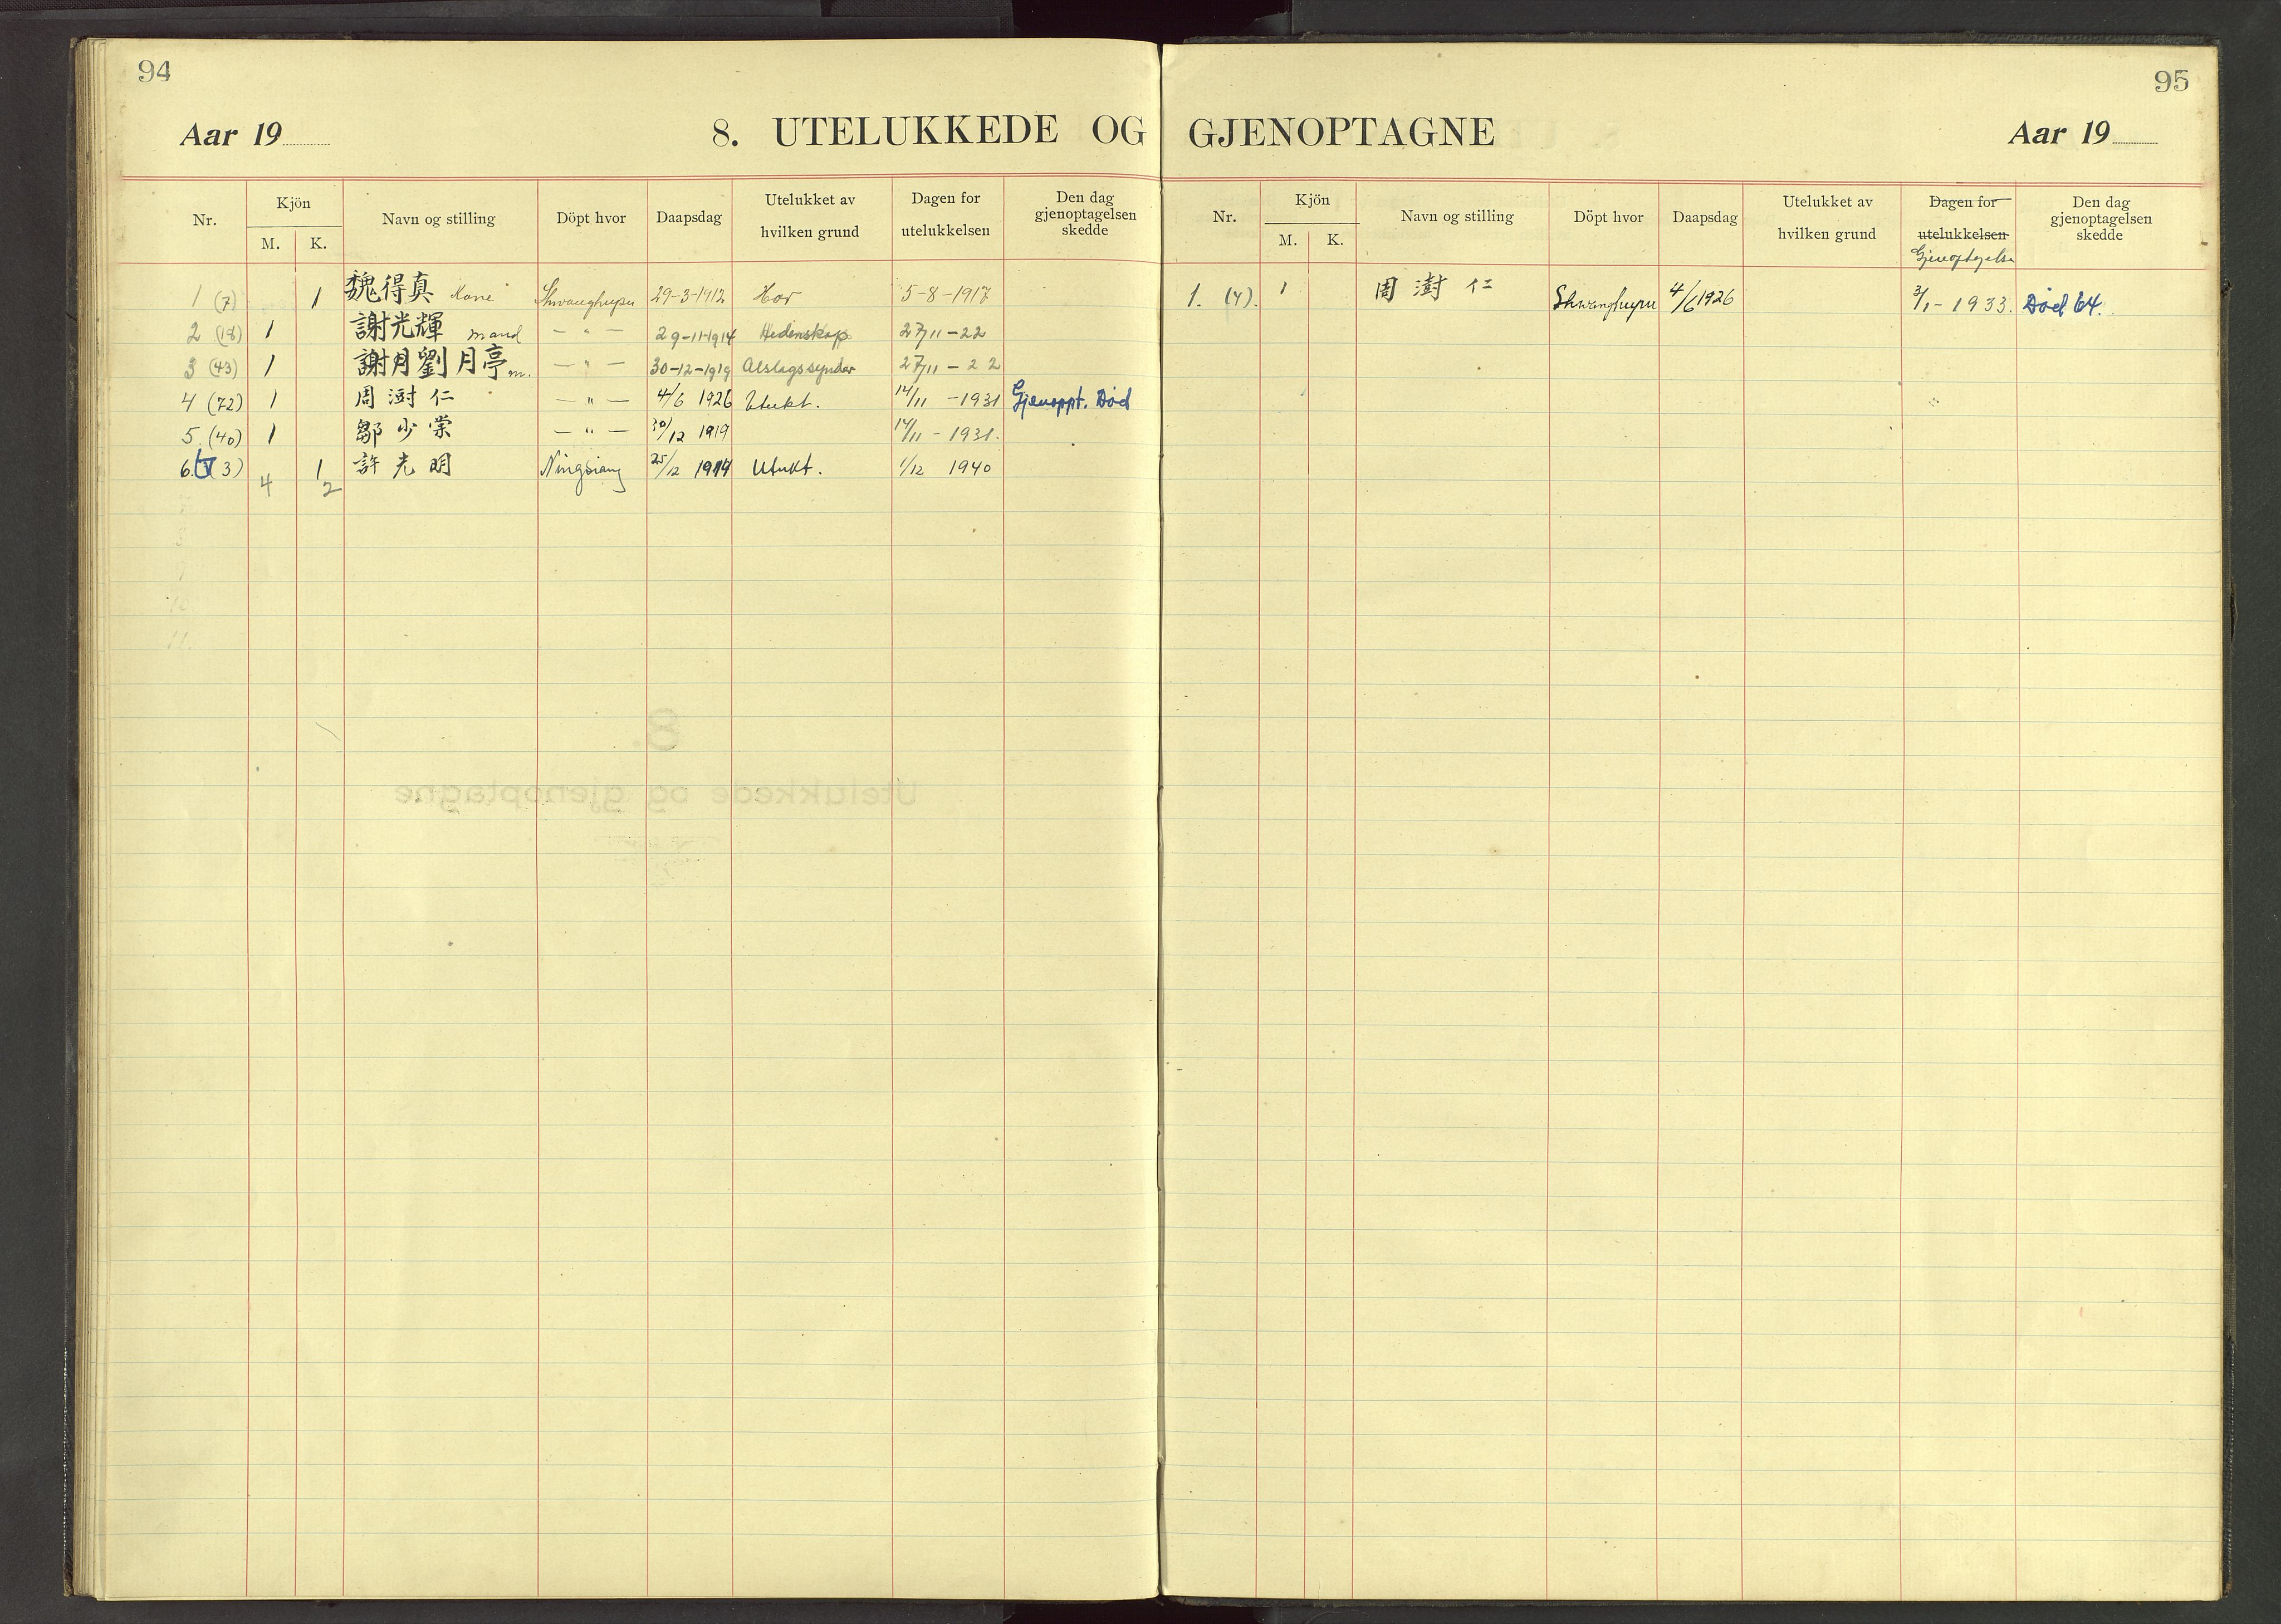 94
Aar 19
8. UTELUKKEDE OG
Nr. Kjön M. K. Navn og stilling Döpt hvor Daapsdag Utelukket av hvilken grund Dagen for utelukkelsen Den dag gjenoptagelsen skedde
1 (7) 1 魏得真 Kone 29-3-1912 Hor 5-8-1917
2 (18) 1 謝光輝 mand — " — 29-11-1914 Hedenskap 27/11-22
3 (43) 1 謝月劉月亭 m. — " — 30-12-1919 27/11-22
4 (72) 1 周澍仁 — " — 4/6 1926 Utukt. 14/11 -1931 Gjenoppt. Død
5. (40) 1 鄒少棠 — " — 30/12 1919 14/11 - 1931.
6. 3) 1 許光明 Ningsiang 25/12 Utukt. 1/12 1940
4 2
95
GJENOPTAGNE
Aar 19
Nr. Kjön M. K. Navn og stilling Döpt hvor Daapsdag Utelukket av hvilken grund Dagen for utelukkelsen Gjenoptagelse Den dag gjenoptagelsen skedde
1. 1 周澍仁 4/6 1926 3/1-1933. Død 64.